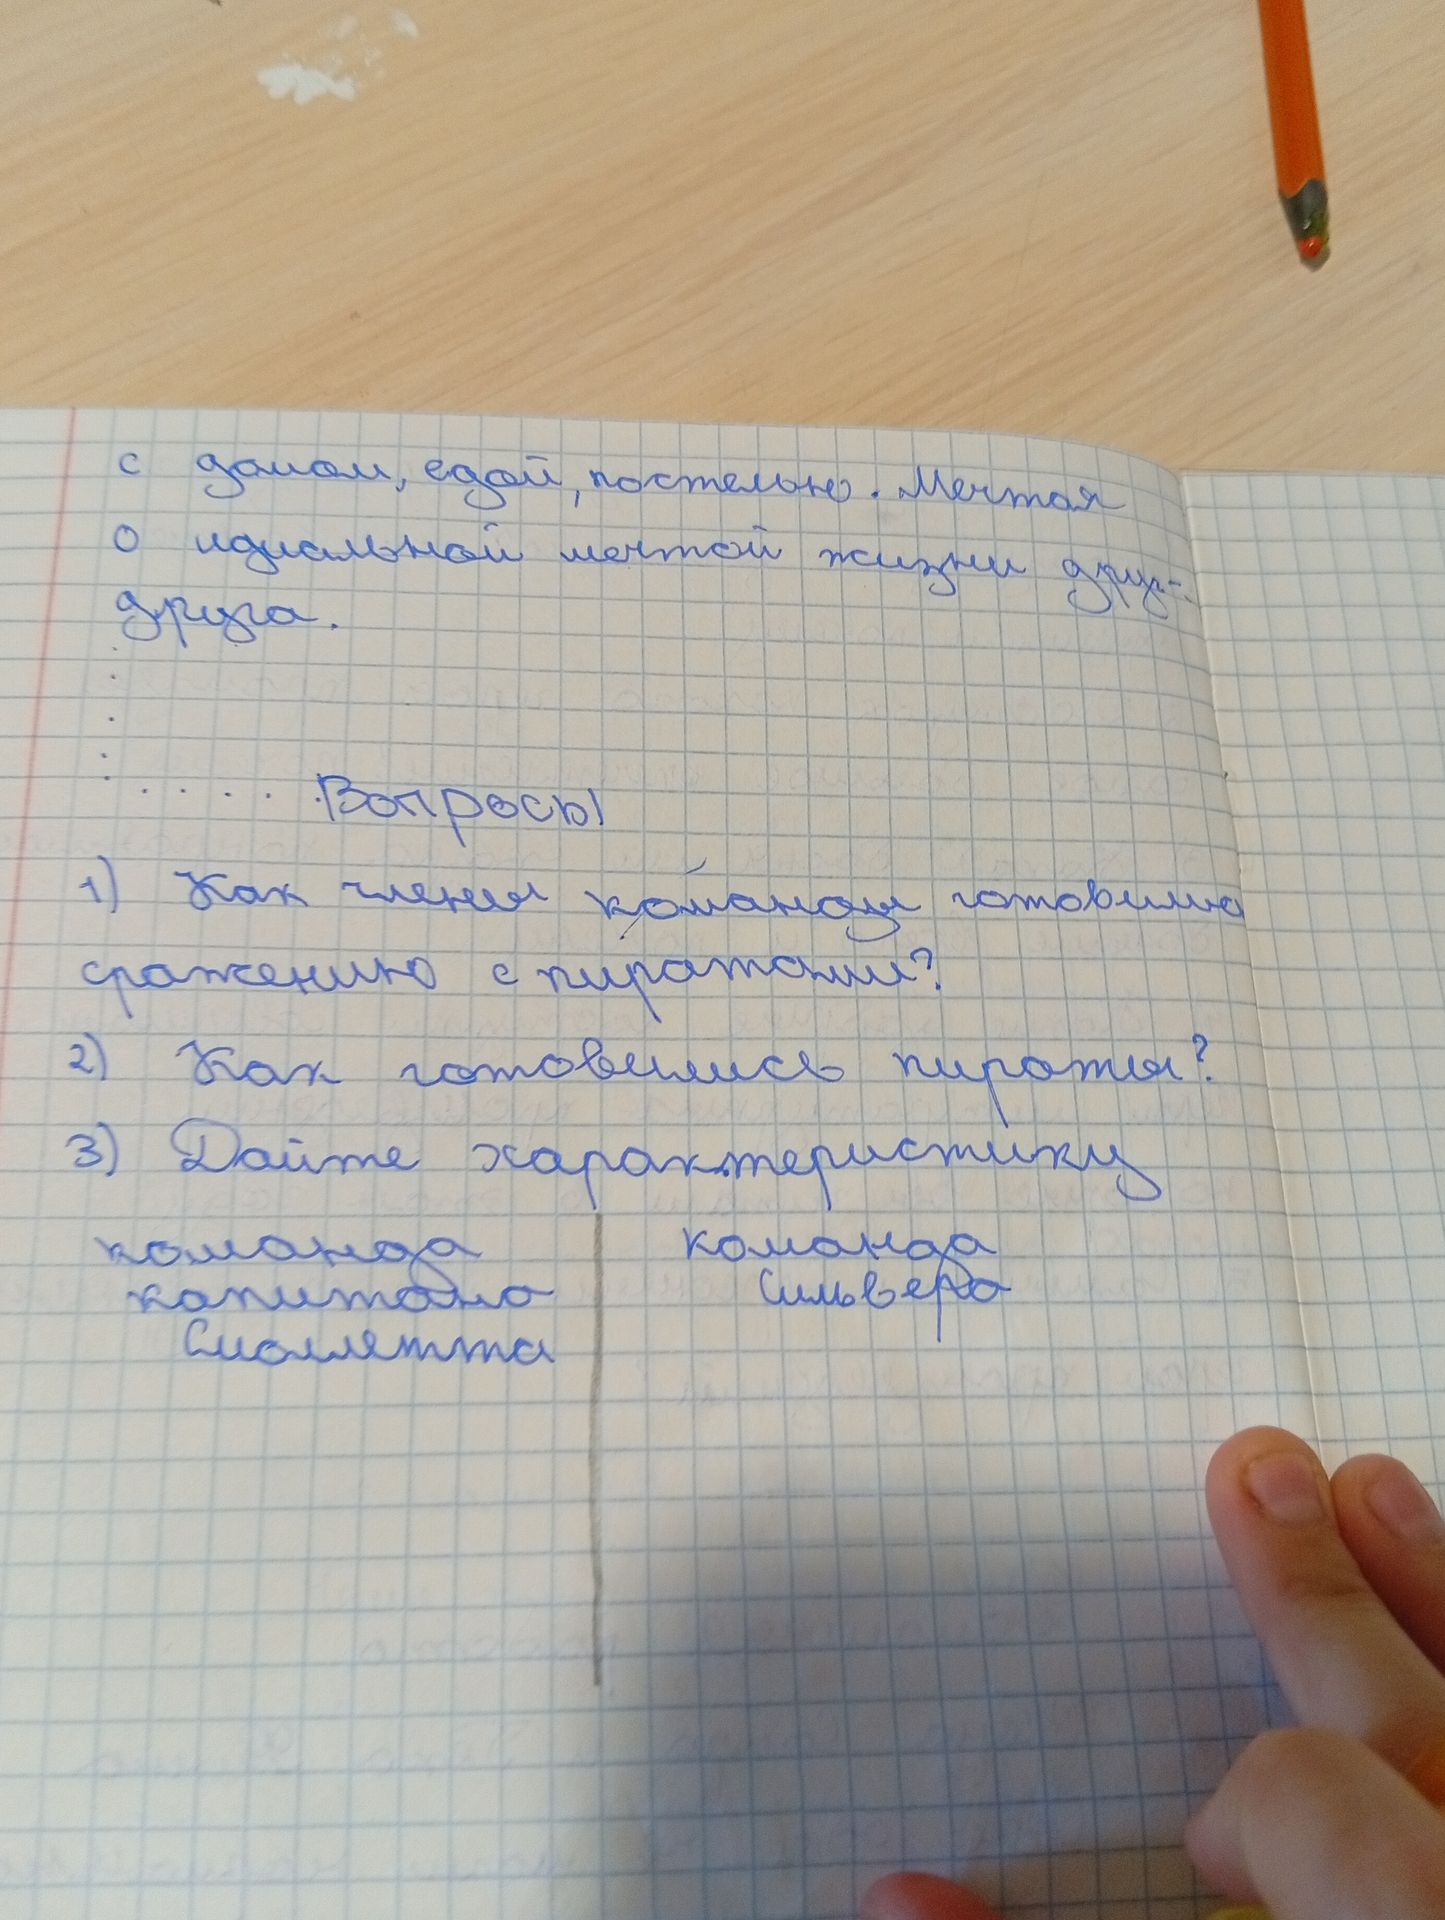 с домом, едой, постелью. Мечтая
о идиальной мечтой жизни друг-
друга.
Вопросы
1) Как члены команды готовились
сражению с пиратами?
2) Как готовились пираты?
3) Дайте характеристику
команда команда
капитана Сильвера
Смоллетта